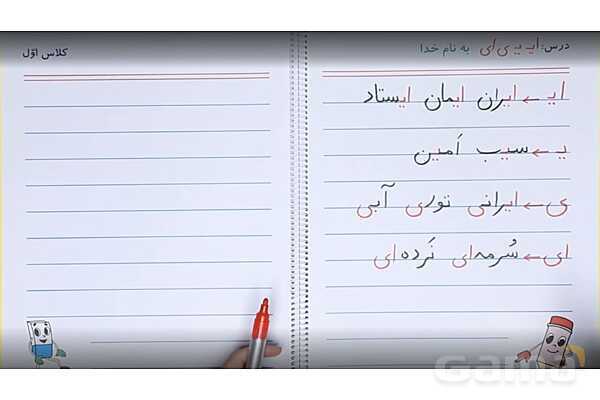 درس: ایـ یـ ی ای به نام خدا
ایـ ← ایران ایمان ایستاد
یـ ← سیب اَمین
ی ← ایرانی توری آبی
ای ← سُرمه‌ای نَرده‌ای
کلاس اوّل
Gama